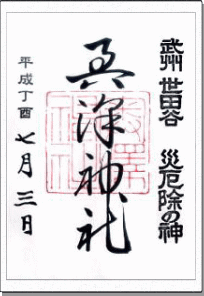 武州 世田谷 災厄除の神
奥澤神社
平成丁酉 七月三日